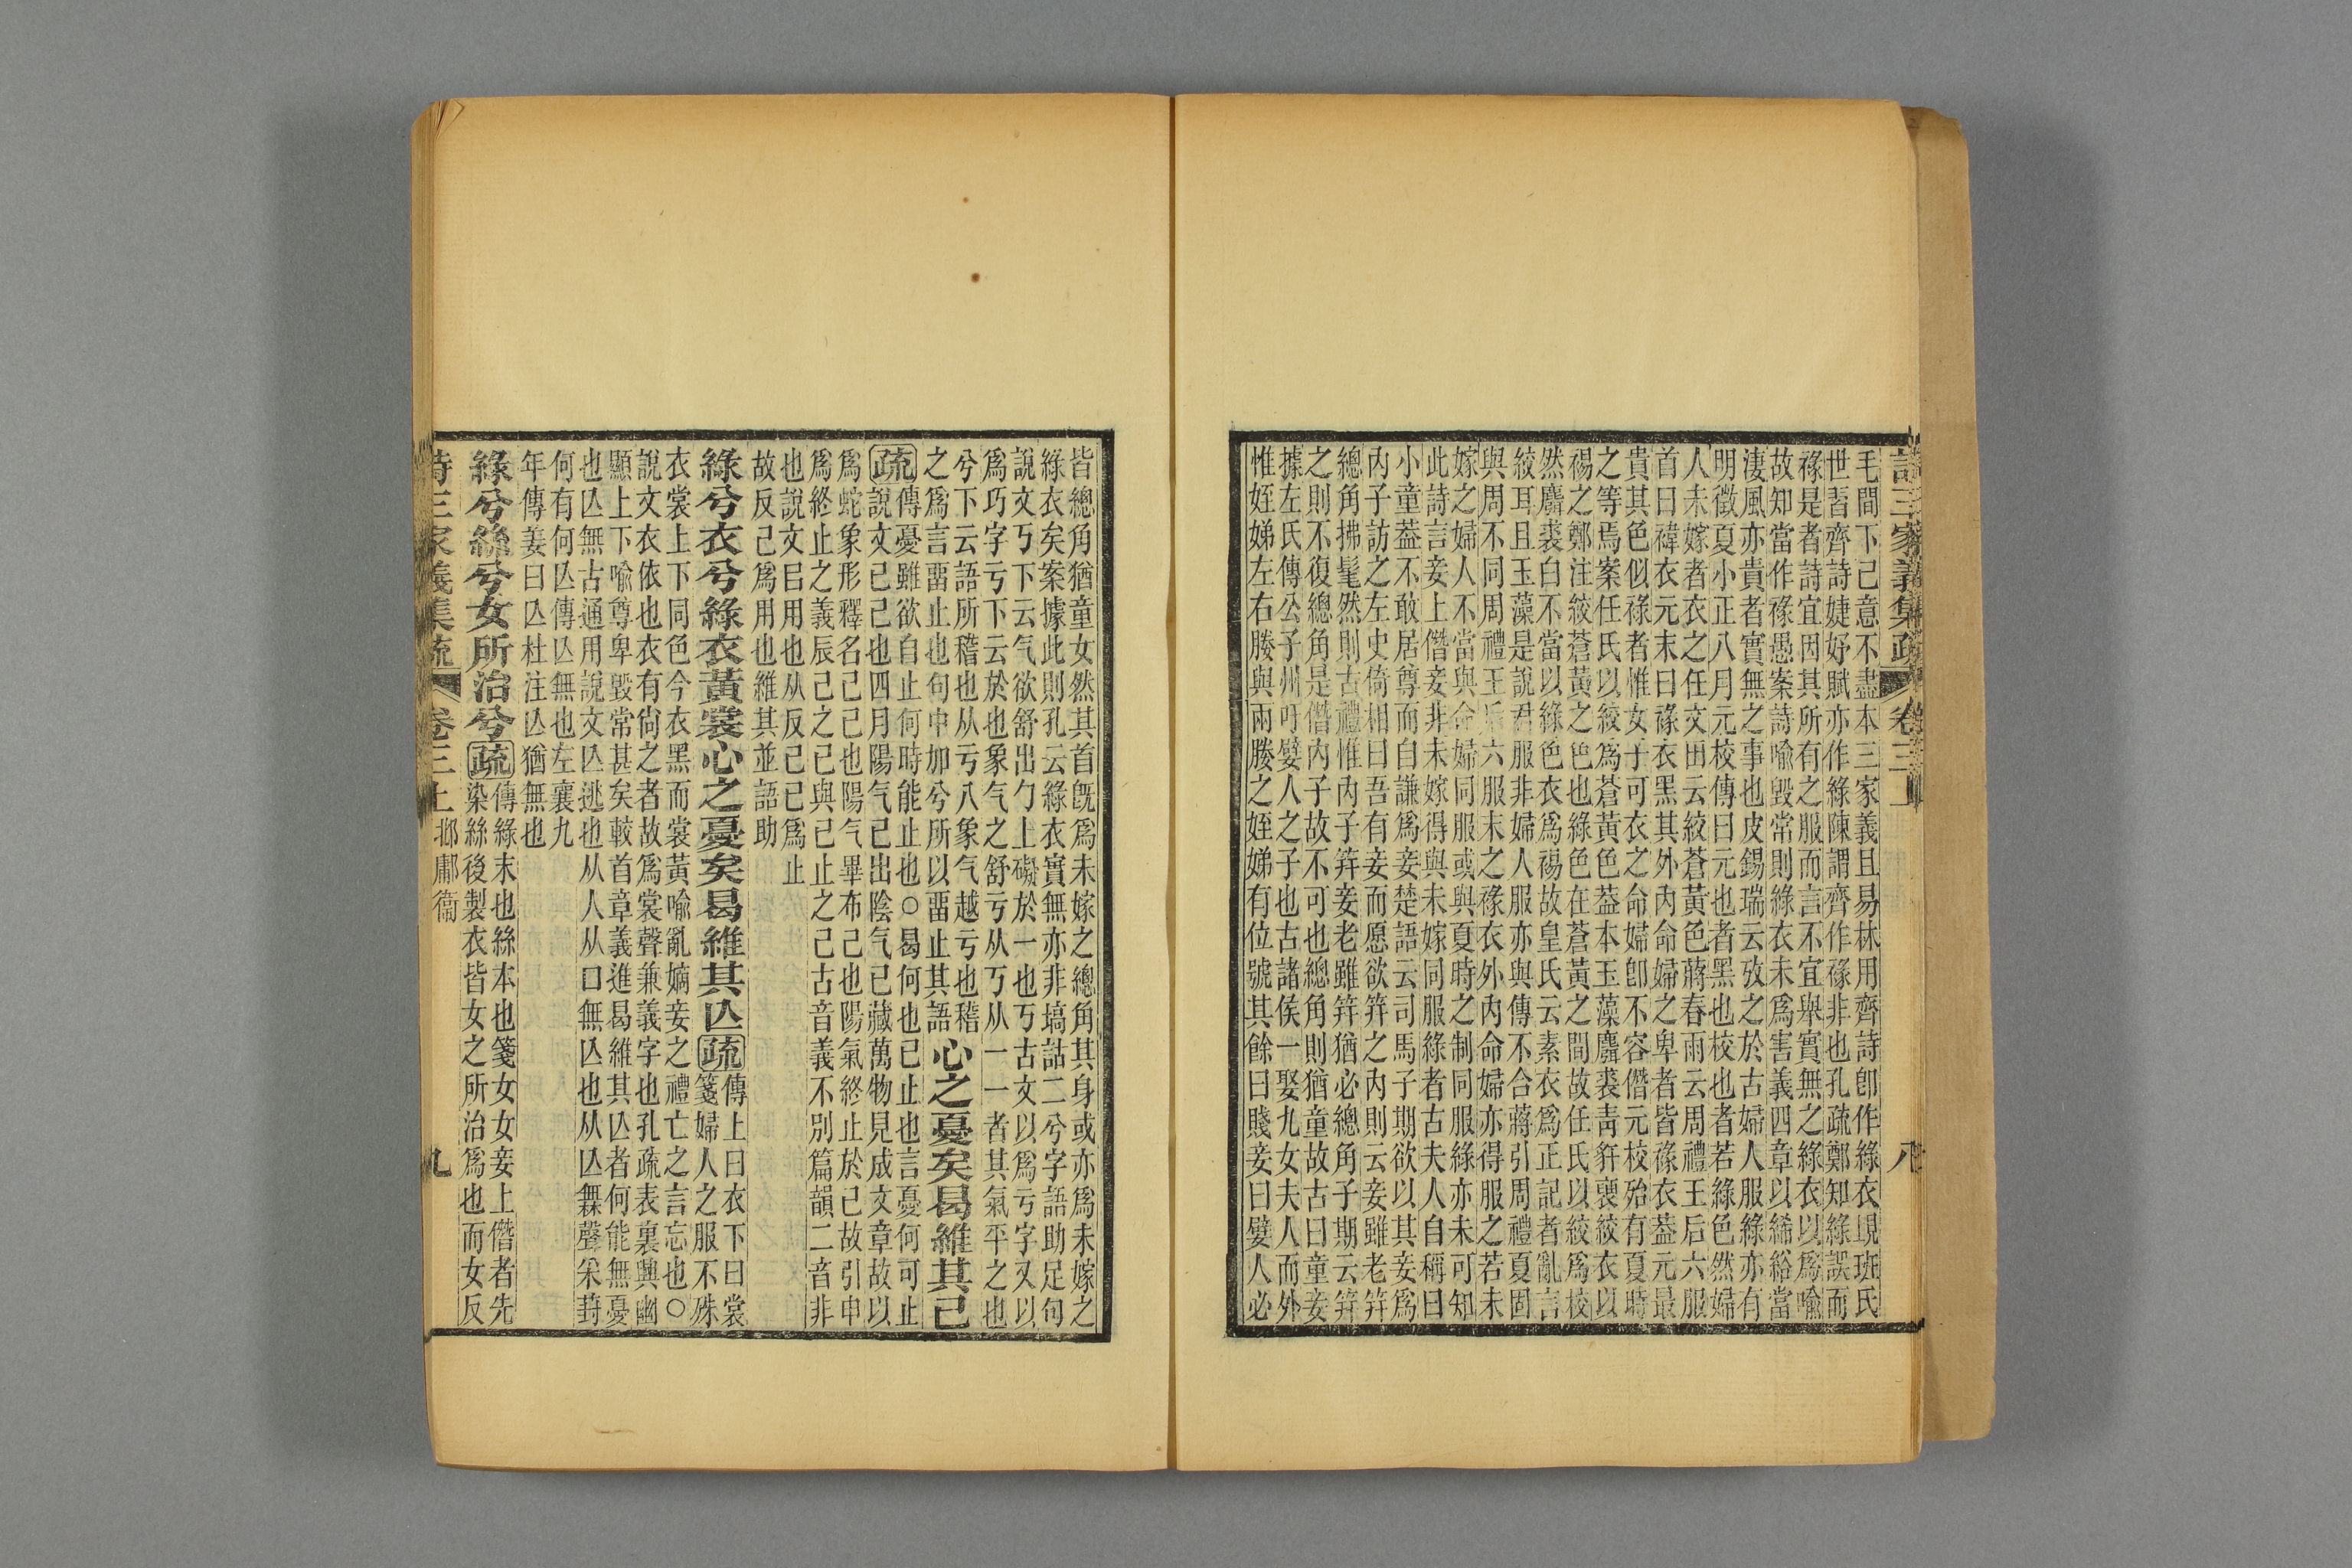 詩三家義集疏 卷三上 八
毛間下己意不盡本三家義且易林用齊詩卽作綠衣覞班氏
世習齊詩婕妤賦亦作綠陳謂齊作褖非也孔疏鄭知綠誤而
褖是者詩宜因其所有之服而言不宜舉實無之綠衣以爲喻
故知當作褖愚案詩喻毀常則綠衣未爲害義四章以絺綌當
淒風亦貴者實無之事也皮錫瑞云攷之於古婦人服綠亦有
明徵夏小正八月元校傳曰元也者黑也校也者若綠色然婦
人未嫁者衣之任文田云絞蒼黃色蔣春雨云周禮王后六服
首曰褘衣元末曰褖衣黑其外內命婦之卑者皆褖衣葢元最
貴其色似褖者惟女子可衣之命婦卽不容僭元校殆有夏時
之等焉案任氏以絞爲蒼黃色葢本玉藻麛裘靑豻褎絞衣以
裼之鄭注絞蒼黃之色也綠色在蒼黃之間故任氏以絞爲校
然麛裘白不當以綠色衣爲裼故皇氏云素衣爲正記者亂言
絞耳且玉藻是說君服非婦人服亦與傳不合蔣引周禮夏固
與周不同周禮王后六服末之褖衣外內命婦亦得服之若未
嫁之婦人不當與命婦同服或與夏時之制同服綠亦未可知
此詩言妾上僭妾非未嫁得與未嫁同服綠者古夫人自稱曰
小童葢不敢居尊而自謙爲妾楚語云司馬子期欲以其妾爲
內子訪之左史倚相曰吾有妾而愿欲笄之內則云妾雖老笄
總角拂髦然則古禮惟內子笄妾老雖笄猶必總角子期云笄
之則不復總角是僭內子故不可也總角則猶童故古曰童妾
據左氏傳公子州吁嬖人之子也古諸侯一娶九女夫人而外
惟姪娣左右媵與兩媵之姪娣有位號其餘曰賤妾曰嬖人必
皆總角猶童女然其首旣爲未嫁之總角其身或亦爲未嫁之
綠衣矣案據此則孔云綠衣實無亦非塙詁二兮字語助足句
說文丂下云气欲舒出勹上礙於一也丂古文以爲亏字又以
爲巧字亏下云於也象气之舒亏从丂从一一者其氣平之也
兮下云語所稽也从丂八象气越亏也稽
之爲言畱止也句中加兮所以畱止其語心之憂矣曷維其已
疏傳憂雖欲自止何時能止也○曷何也已止也言憂何可止
說文已己也四月陽气已出陰气已藏萬物見成文章故以
爲蛇象形釋名已己也陽气畢布己也陽氣終止於已故引申
爲終止之義辰已之已與已止之已古音義不別篇韻二音非
也說文㠯用也从反已已爲止
故反已爲用也維其並語助
綠兮衣兮綠衣黃裳心之憂矣曷維其亾疏傳上曰衣下曰裳
箋婦人之服不殊
衣裳上下同色今衣黑而裳黃喻亂嫡妾之禮亡之言忘也○
說文衣依也衣有尙之者故爲裳聲兼義字也孔疏表裏興幽
顯上下喻尊卑毀常甚矣較首章義進曷維其亾者何能無憂
也亾無古通用說文亾逃也从人从𠃊無亾也从亾𣞤聲釆葑
何有何亾傳亾無也左襄九
年傳姜曰亾杜注亾猶無也
綠兮絲兮女所治兮疏傳綠末也絲本也箋女女妾上僭者先
染絲後製衣皆女之所治爲也而女反
詩三家義集疏 卷三上 邶鄘衞 九